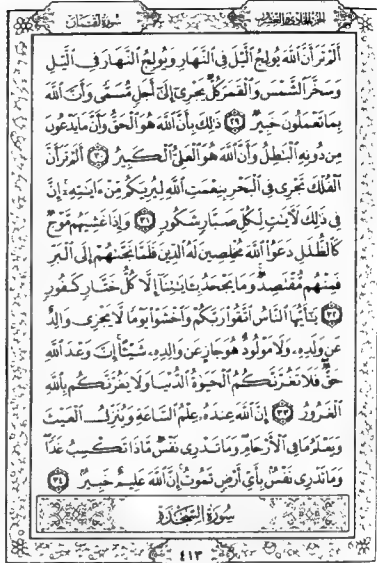 الجزء الحادي والعشرون سورة لقمان
أَلَمْ تَرَ أَنَّ ٱللَّهَ يُولِجُ ٱلَّيْلَ فِي ٱلنَّهَارِ وَيُولِجُ ٱلنَّهَارَ فِي ٱلَّيْلِ
وَسَخَّرَ ٱلشَّمْسَ وَٱلْقَمَرَ كُلٌّ يَجْرِيٓ إِلَىٰٓ أَجَلٍ مُّسَمًّى وَأَنَّ ٱللَّهَ
بِمَا تَعْمَلُونَ خَبِيرٌ ٢٩ ذَٰلِكَ بِأَنَّ ٱللَّهَ هُوَ ٱلْحَقُّ وَأَنَّ مَا يَدْعُونَ
مِن دُونِهِ ٱلْبَٰطِلُ وَأَنَّ ٱللَّهَ هُوَ ٱلْعَلِيُّ ٱلْكَبِيرُ ٣٠ أَلَمْ تَرَ أَنَّ
ٱلْفُلْكَ تَجْرِي فِي ٱلْبَحْرِ بِنِعْمَتِ ٱللَّهِ لِيُرِيَكُم مِّنْ ءَايَٰتِهِۦٓ إِنَّ
فِي ذَٰلِكَ لَءَايَٰتٍ لِّكُلِّ صَبَّارٍ شَكُورٍ ٣١ وَإِذَا غَشِيَهُم مَّوْجٌ
كَٱلظُّلَلِ دَعَوُا۟ ٱللَّهَ مُخْلِصِينَ لَهُ ٱلدِّينَ فَلَمَّا نَجَّىٰهُمْ إِلَى ٱلْبَرِّ
فَمِنْهُم مُّقْتَصِدٌ وَمَا يَجْحَدُ بِـَٔايَٰتِنَآ إِلَّا كُلُّ خَتَّارٍ كَفُورٍ
٣٢ يَٰٓأَيُّهَا ٱلنَّاسُ ٱتَّقُوا۟ رَبَّكُمْ وَٱخْشَوْا۟ يَوْمًا لَّا يَجْزِي وَالِدٌ
عَن وَلَدِهِۦ وَلَا مَوْلُودٌ هُوَ جَازٍ عَن وَالِدِهِۦ شَيْـًٔا إِنَّ وَعْدَ ٱللَّهِ
حَقٌّ فَلَا تَغُرَّنَّكُمُ ٱلْحَيَوٰةُ ٱلدُّنْيَا وَلَا يَغُرَّنَّكُم بِٱللَّهِ
ٱلْغَرُورُ ٣٣ إِنَّ ٱللَّهَ عِندَهُۥ عِلْمُ ٱلسَّاعَةِ وَيُنَزِّلُ ٱلْغَيْثَ
وَيَعْلَمُ مَا فِي ٱلْأَرْحَامِ وَمَا تَدْرِي نَفْسٌ مَّاذَا تَكْسِبُ غَدًا
وَمَا تَدْرِي نَفْسٌۢ بِأَيِّ أَرْضٍ تَمُوتُ إِنَّ ٱللَّهَ عَلِيمٌ خَبِيرٌۢ ٣٤
سُورَةُ السَّجْدَةِ
٤١٣